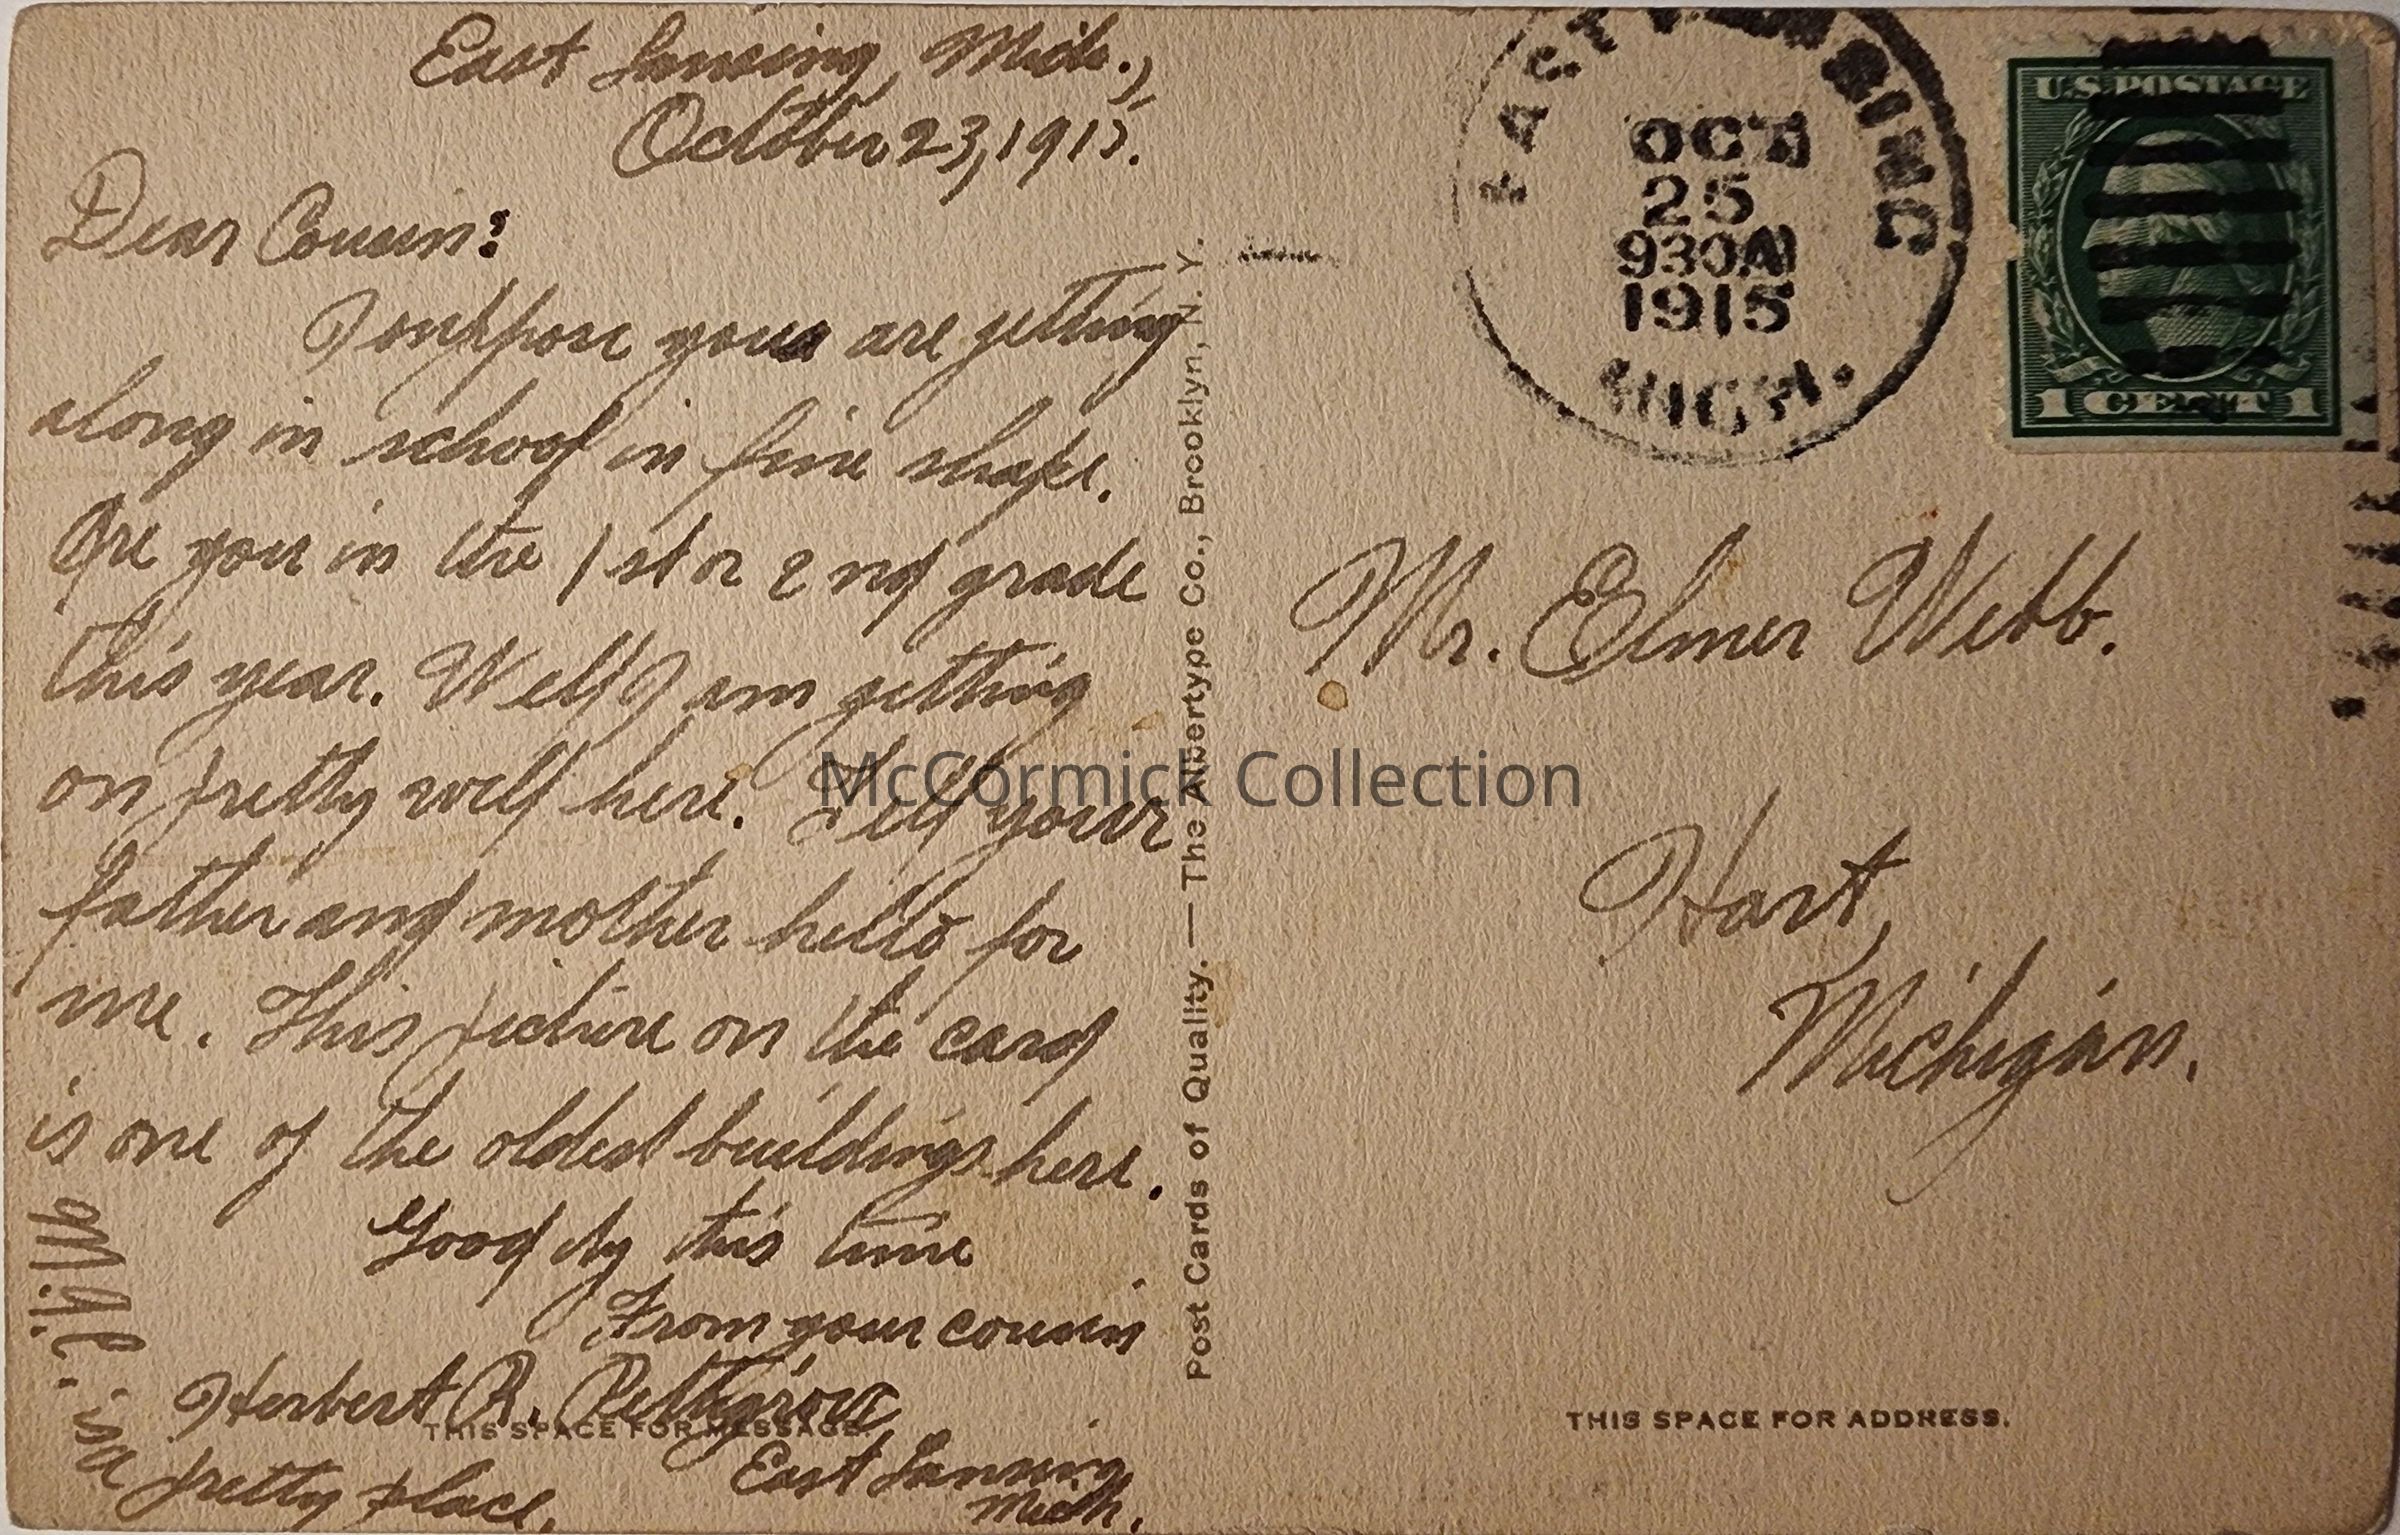 East Lansing, Mich.,
October 23, 1915.
Dear Cousin:
I suppose you are getting
along in school in fine shape.
Are you in the 1st or 2nd grade
this year. Well I am getting
on pretty well here. Tell your
father and mother hello for
me. This picture on the card
is one of the oldest buildings here.
Good by this time
From your cousin
Herbert R. Pettigrove,
East Lansing
Mich.
M.A.C. is a
pretty place.
THIS SPACE FOR MESSAGE
Post Cards of Quality. — The Albertype Co., Brooklyn, N. Y.
EAST LANSING
OCT
25
930AM
1915
MICH.
U.S. POSTAGE
1 CENT 1
Mr. Elmer Webb.
Hart,
Michigan.
THIS SPACE FOR ADDRESS.
McCormick Collection